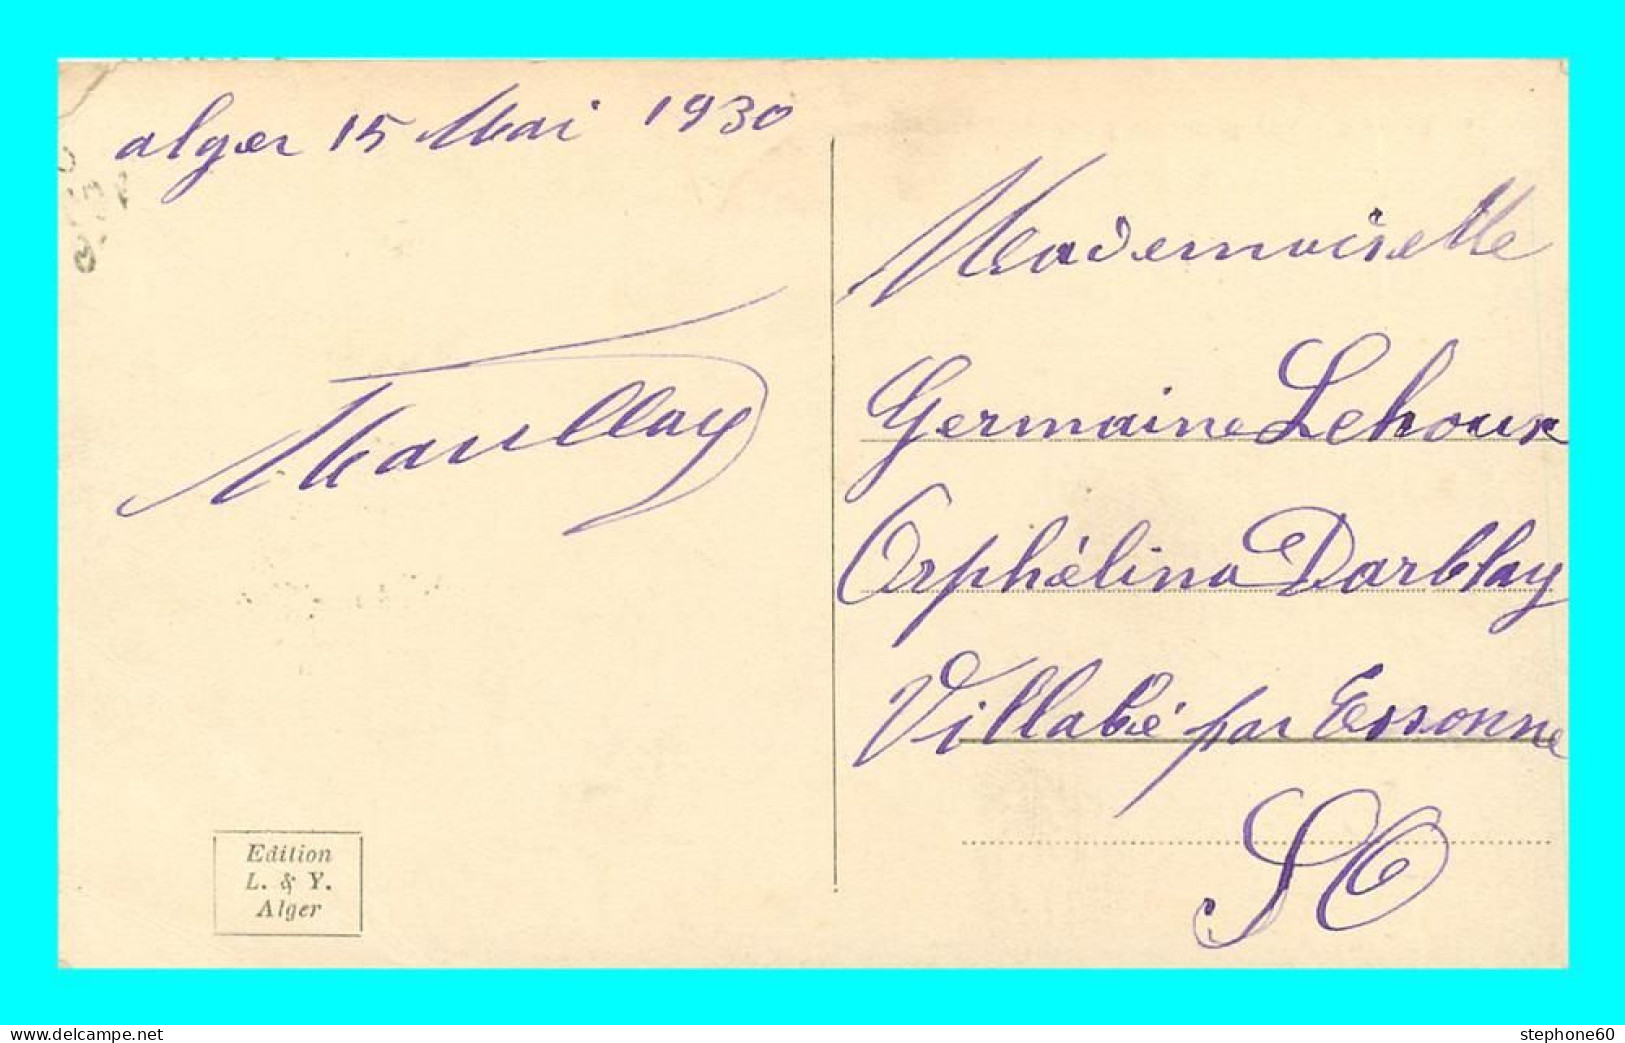 alger 15 Mai 1930
Maullay
Mademoiselle
Germaine Lehoux
Orphélina Darblay
Villabé par Essonne
SO
Edition
L. & Y.
Alger
www.delcampe.net
stephone60